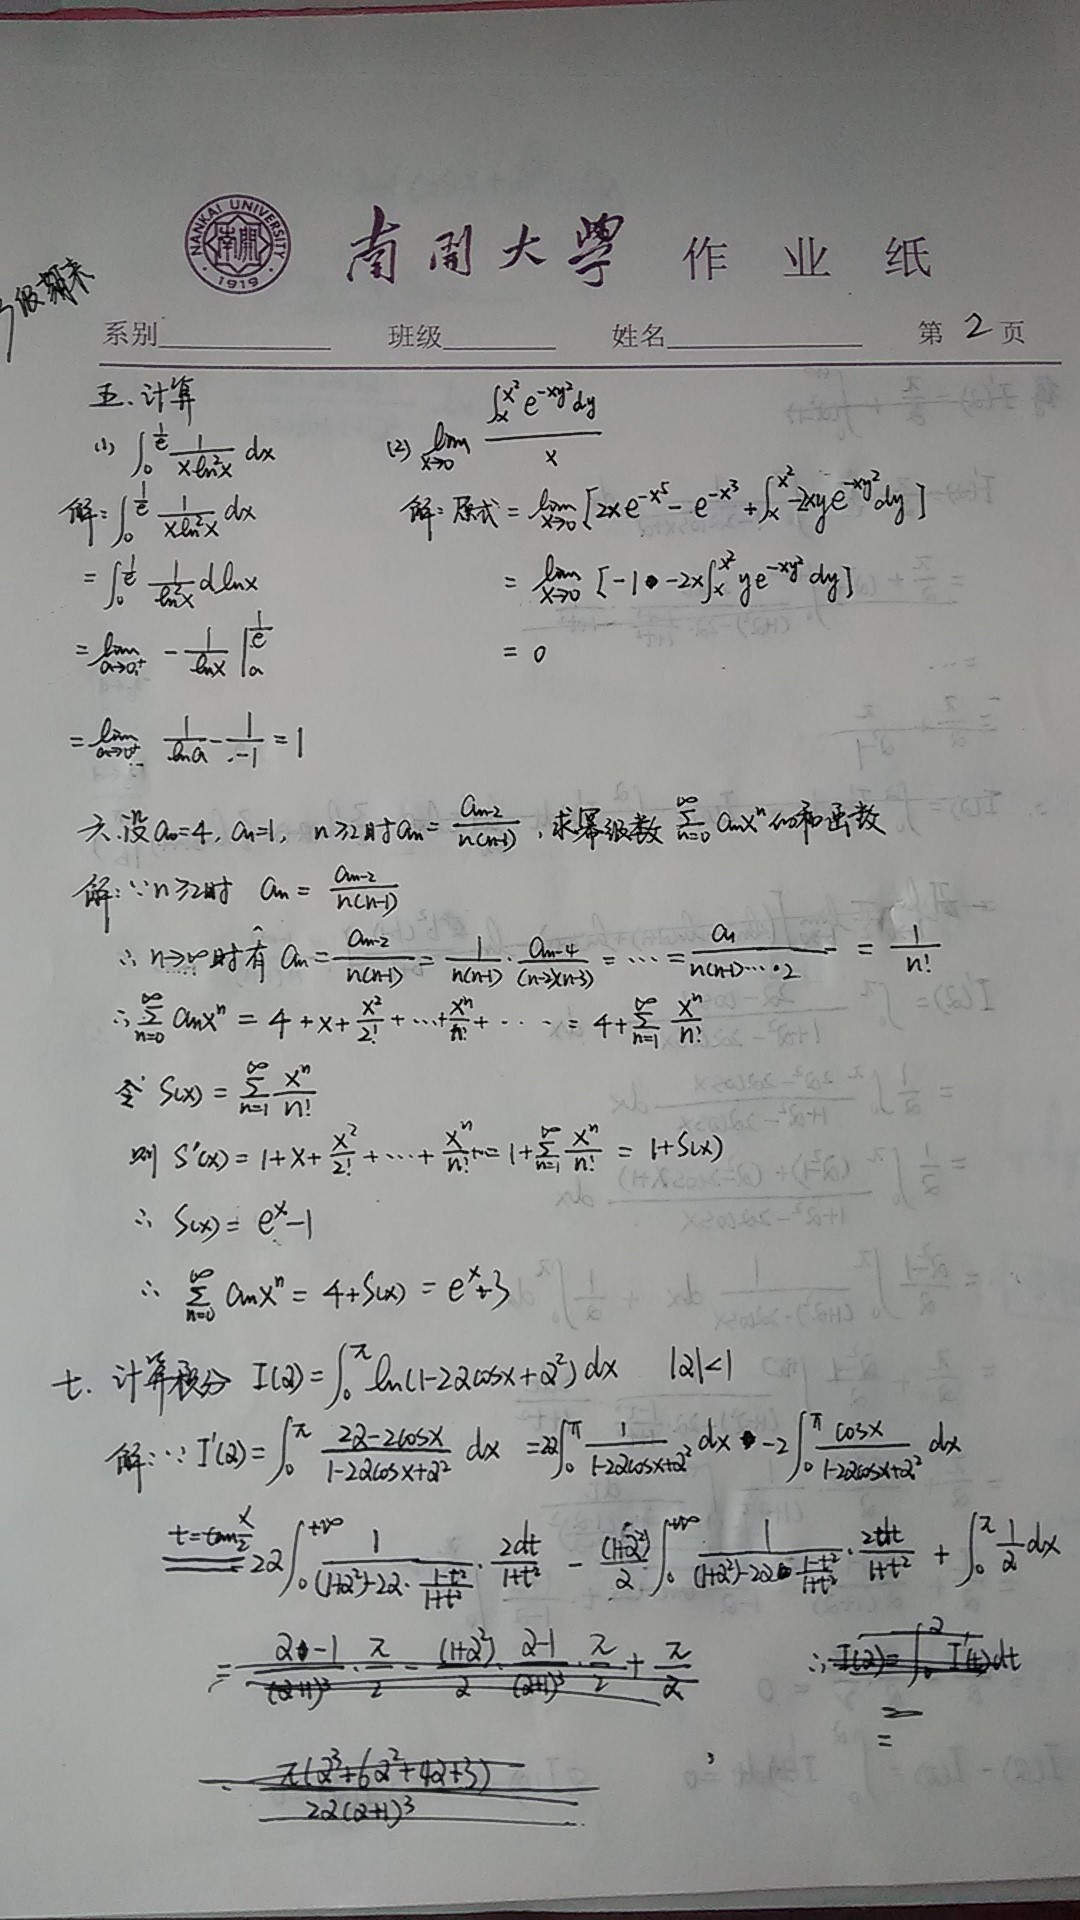 NANKAI UNIVERSITY
1919
南開大學 作业纸
级期末
系别 班级 姓名 第 2 页
五、计算
(1) ∫_0^{1/e} 1/(xln²x) dx (2) lim_{x→0} (∫_x^{x²} e^{-xy²}dy)/x
解:∫_0^{1/e} 1/(xln²x) dx 解:原式 = lim_{x→0} [2xe^{-x⁵} - e^{-x³} + ∫_x^{x²} -2xye^{-xy²}dy]
= ∫_0^{1/e} 1/(ln²x) dlnx = lim_{x→0} [-1 -2x∫_x^{x²} ye^{-xy²}dy]
= lim_{a→0⁺} -1/(lnx) |_a^{1/e} = 0
= lim_{a→0⁺} 1/(lna) - 1/(-1) = 1
六、设a₀=4, a₁=1, n≥2时aₙ = aₙ₋₂/(n(n-1)), 求幂级数 ∑_{n=0}^∞ aₙxⁿ的和函数
解:∵n≥2时 aₙ = aₙ₋₂/(n(n-1))
∴ n→∞时有 aₙ = aₙ₋₂/(n(n-1)) = 1/(n(n-1)) · aₙ₋₄/((n-2)(n-3)) = ⋯ = a₁/(n(n-1)⋯·2) = 1/n!
∴ ∑_{n=0}^∞ aₙxⁿ = 4+x+x²/2!+⋯+xⁿ/n!+⋯ = 4+∑_{n=1}^∞ xⁿ/n!
令 S(x) = ∑_{n=1}^∞ xⁿ/n!
则 S'(x) = 1+x+x²/2!+⋯+xⁿ/n!+⋯ = 1+∑_{n=1}^∞ xⁿ/n! = 1+S(x)
∴ S(x) = eˣ-1
∴ ∑_{n=0}^∞ aₙxⁿ = 4+S(x) = eˣ+3
七、计算积分 I(α) = ∫_0^π ln(1-2αcosx+α²)dx |α|<1
解:∵ I'(α) = ∫_0^π (2α-2cosx)/(1-2αcosx+α²) dx = 2α∫_0^π 1/(1-2αcosx+α²) dx -2∫_0^π cosx/(1-2αcosx+α²) dx
t=tan x/2 2α∫_0^{+∞} 1/((1+α²)-2α·(1-t²)/(1+t²)) · 2dt/(1+t²) - (1+α²)/α ∫_0^{+∞} 1/((1+α²)-2α·(1-t²)/(1+t²)) · 2dt/(1+t²) + ∫_0^π 1/α dx
= (α-1)/(α+1)³ · π/2 - (1+α²)/α · (α-1)/(α+1)³ · π/2 + π/α ∴ I(α) = ∫_0^α I'(t)dt
=
π(α³+6α²+4α+3)/(2α(α+1)³)